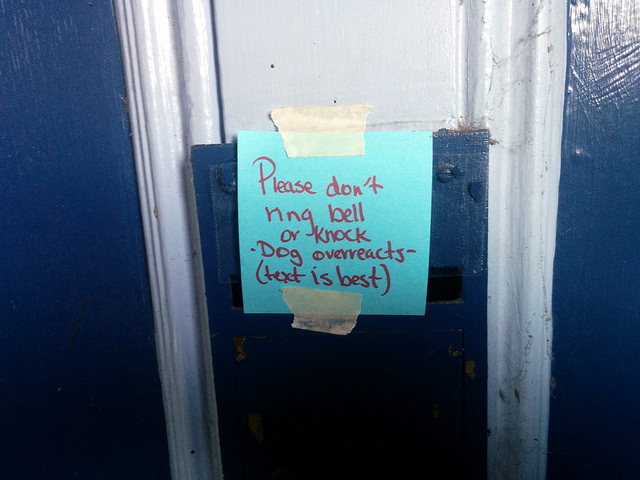 Please don't
ring bell
or knock
-Dog overreacts-
(text is best)